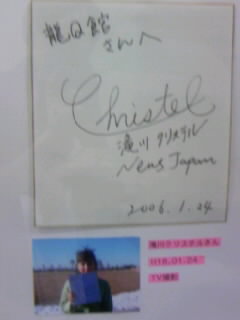 さんへ
Christel
滝川クリステル
News Japan
2006.1.24
滝川クリステルさん
H18.01.24
TV撮影